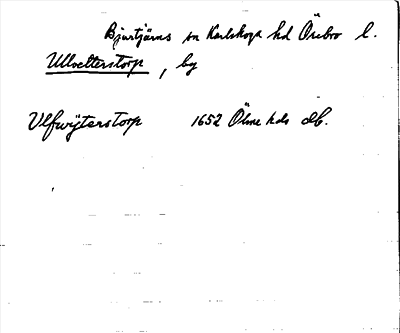 Bjurtjärns sn Karlskoga hd Örebro l.
Ullvetterstorp, by
Ulfwijterstorp 1652 Ölme hds db.